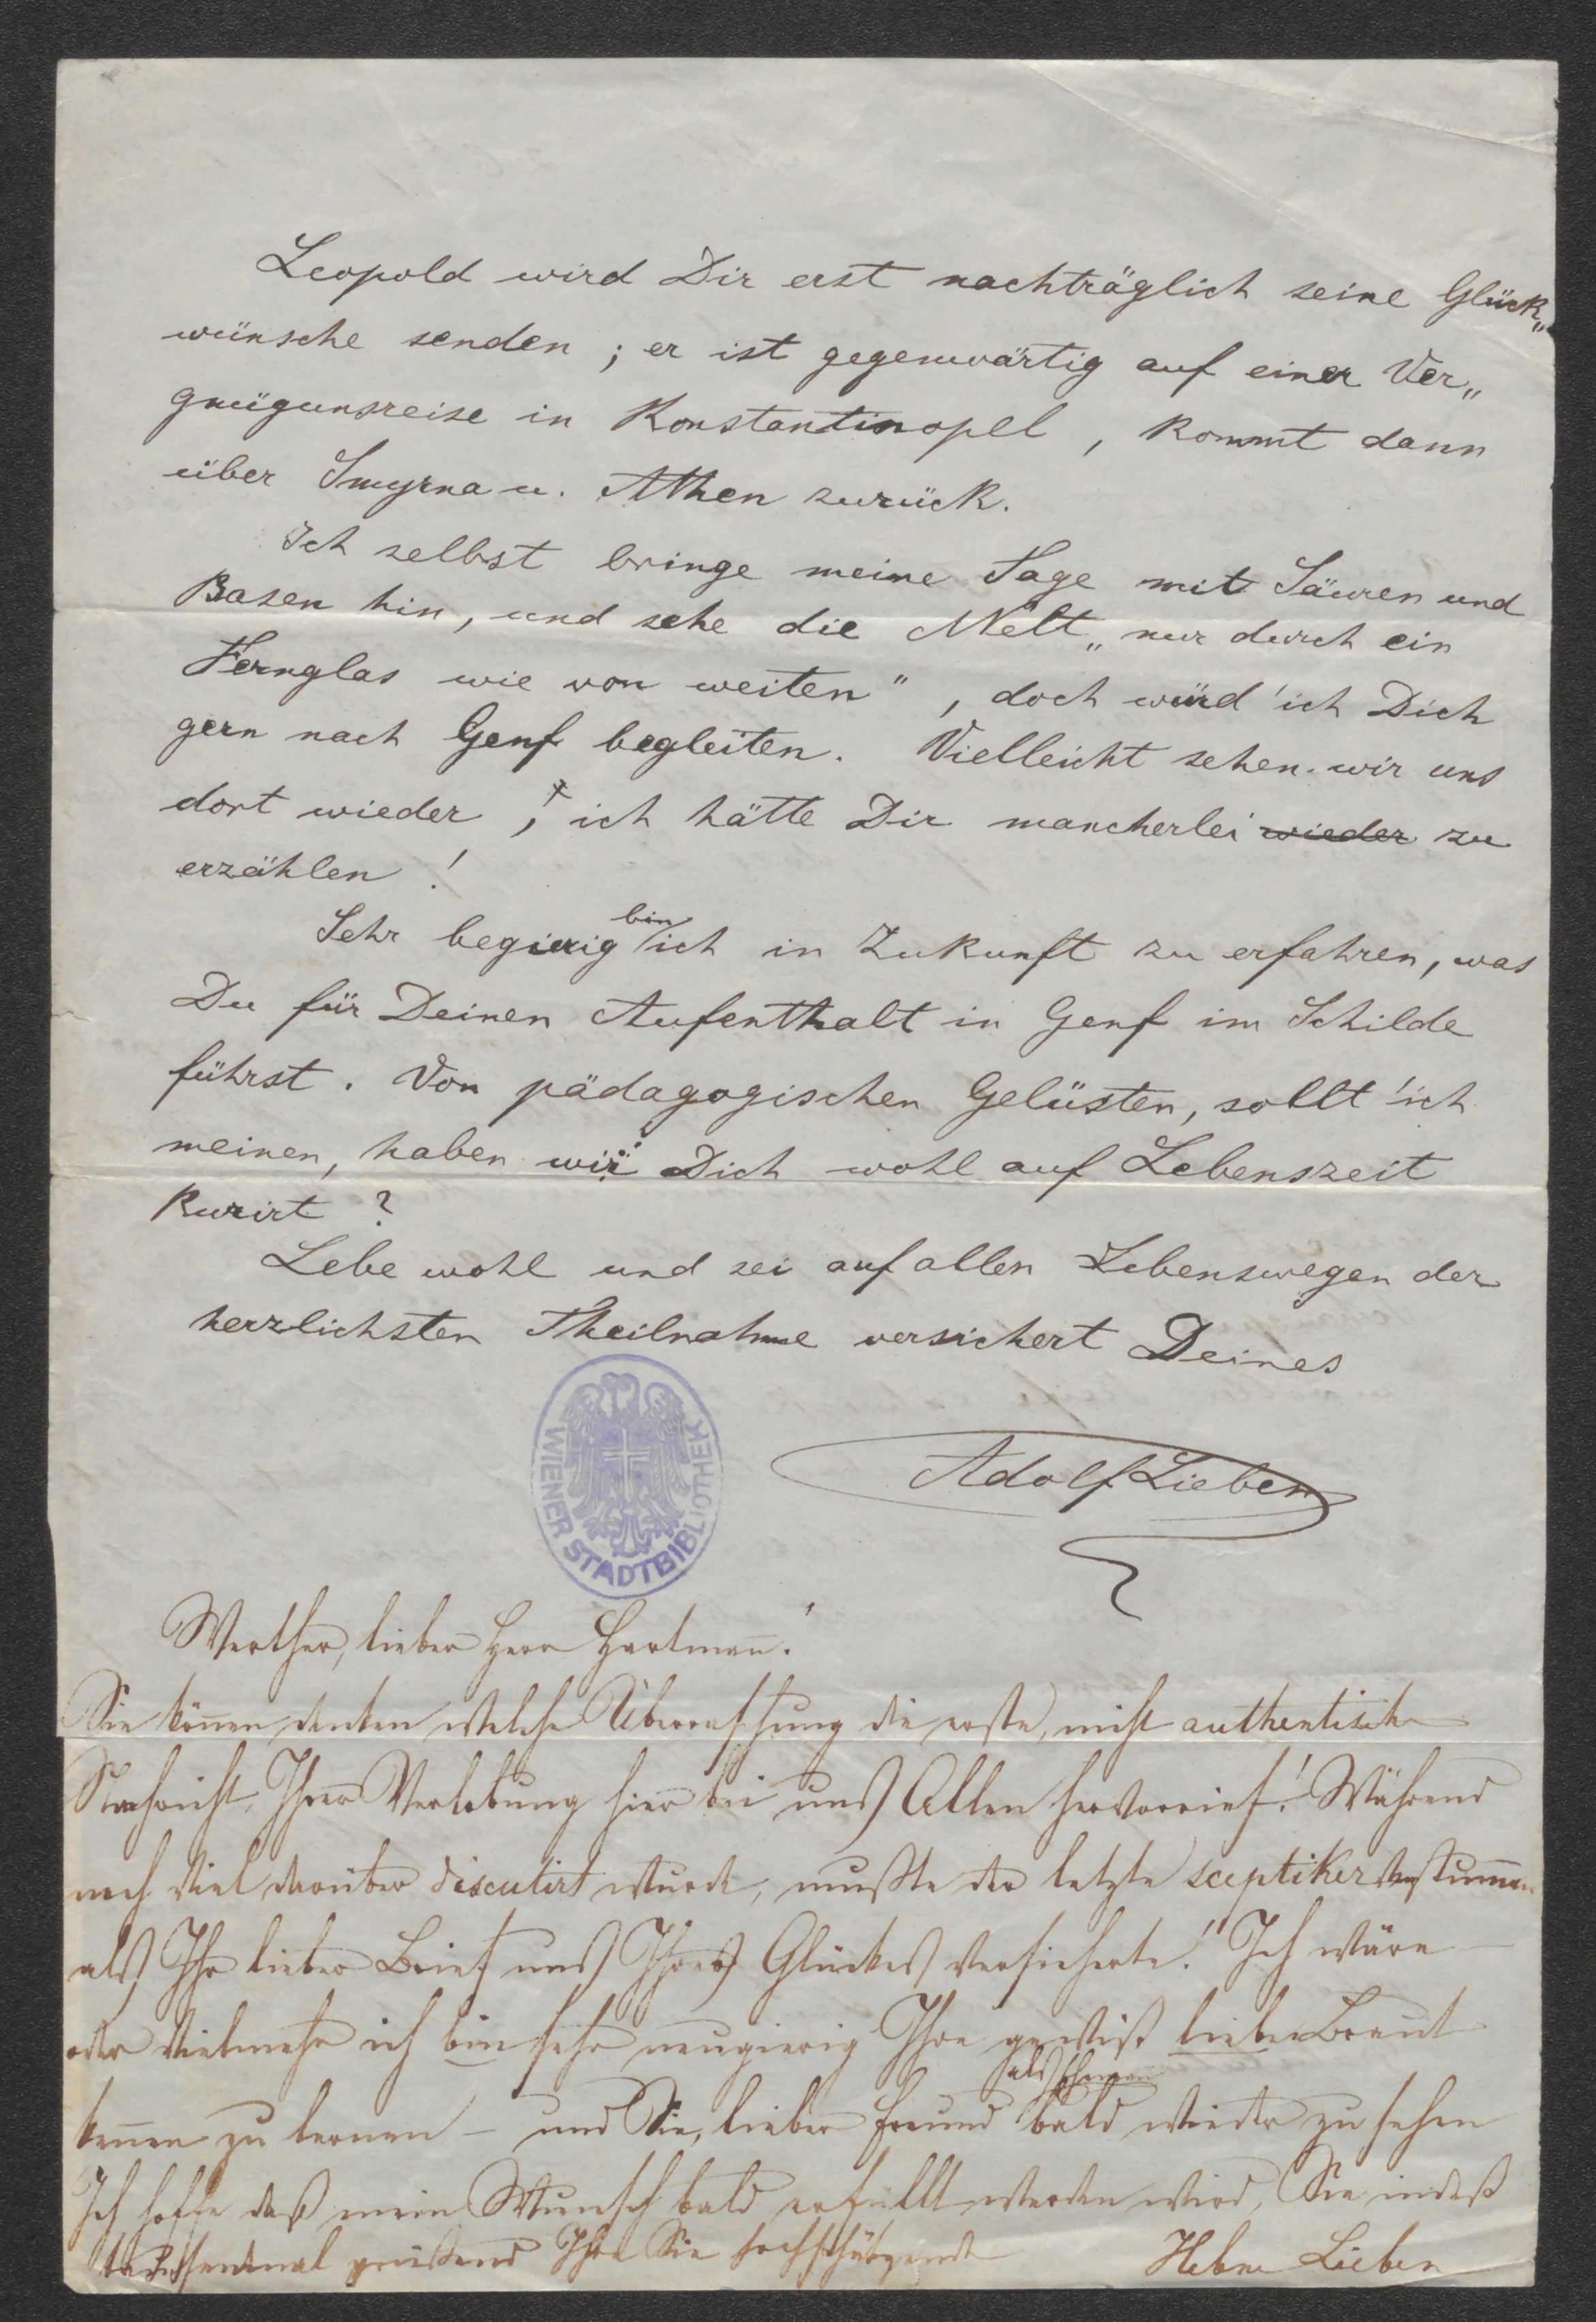 Leopold wird Dir erst nachträglich seine Glück„
wünsche senden ; er ist gegenwärtig auf einer Ver„
gnügunsreise in Konstantinopel , kommt dann
über Smyrna u. Athen zurück.
Ich selbst bringe meine Tage mit Säuren und
Basen hin, und sehe die Welt „nur durch ein
Fernglas wie von weiten" , doch würd' ich Dich
gern nach Genf begleiten. Vielleicht sehen wir uns
dort wieder , ich hätte Dir mancherlei wieder zu
erzählen !
Sehr begierig bin ich in Zukunft zu erfahren, was
Du für Deinen Aufenthalt in Genf im Schilde
führst . Von pädagogischen Gelüsten, sollt' ich
meinen, haben wir Dich wohl auf Lebenszeit
kurirt ?
Lebe wohl und sei auf allen Lebenswegen der
herzlichsten Theilnahme versichert Deines
WIENER STADTBIBLIOTHEK
Adolf Lieben
Werther, lieber Herr Hartmañ!
Sie köñen denken welche Überraschung die erste, nicht authentische
Nachricht, Ihrer Verlobung hier bei uns Allen hervorrief! Während
noch viel darüber discutirt wurde, mußte der letzte sceptiker verstum̄en
als Ihr lieber Brief uns Ihres Glückes versicherte! Ich wäre –
oder vielmehr ich bin sehr neugierig Ihre gewiß liebe Braut
keñen zu lernen – und Sie, lieber Freund bald wieder zu sehen
Ich hoffe daß mein Wunsch bald erfüllt werden wird, Sie indeß
tausendmal grüßend Ihre Sie hochschätzende
Helene Lieben